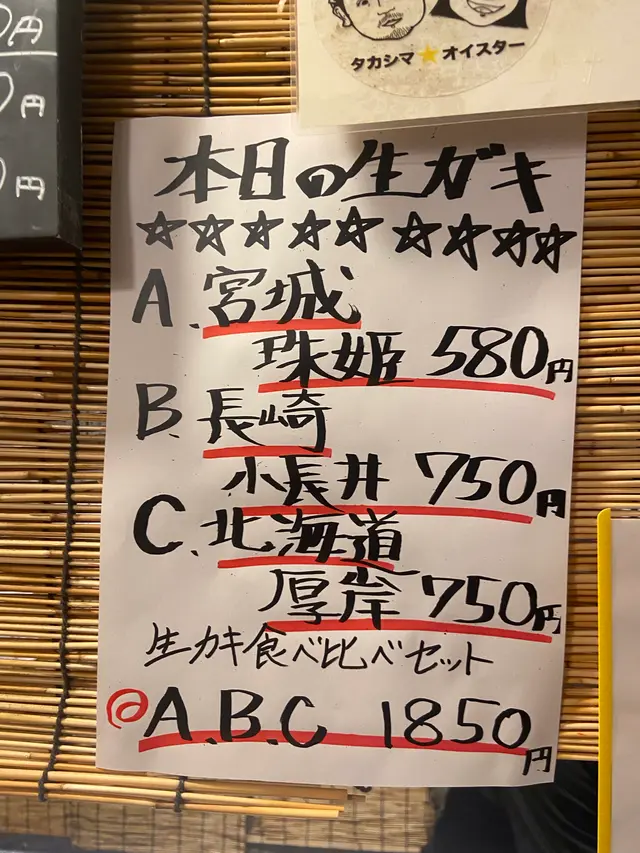 円
円
円
タカシマ★オイスター
本日の生ガキ
☆☆☆☆☆☆☆☆☆
A.宮城
珠姫 580円
B.長崎
小長井 750円
C.北海道
厚岸 750円
生カキ食べ比べセット
A.B.C 1850円